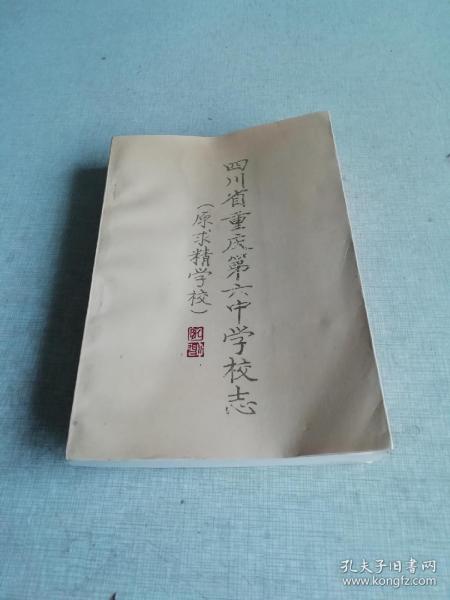 四川省重庆第六中学校志
(原求精学校)
孔夫子旧书网
www.kongfz.com